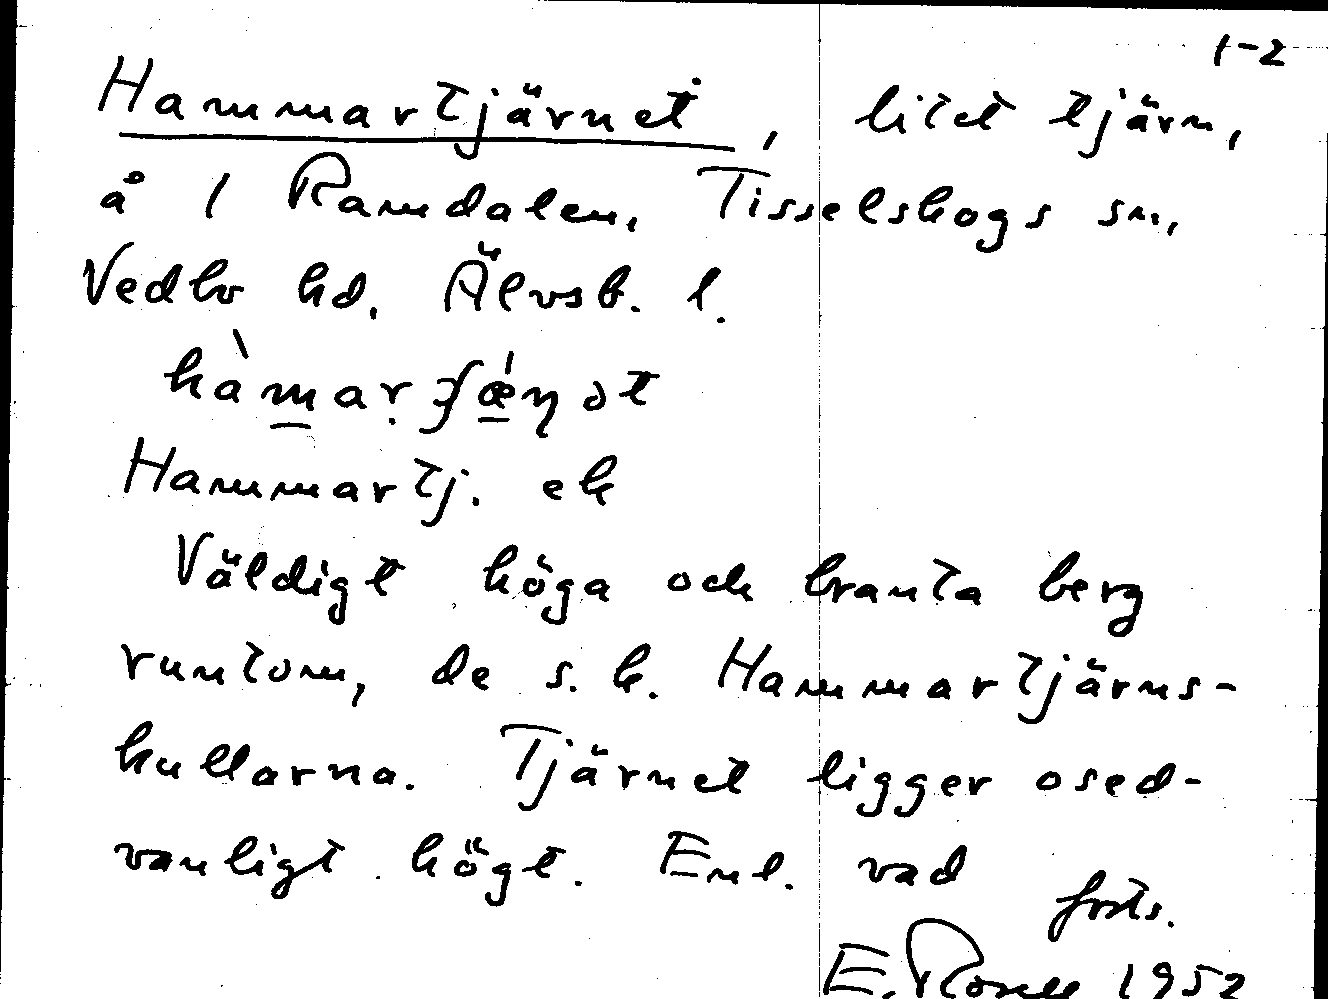 1-2
Hammartjärnet, litet tjärn,
å 1 Ramdalen, Tisselskogs sn,
Vedbo hd. Älvsb. l.
Hammartj. ek
Väldigt höga och branta berg
runtom, de s.k. Hammartjärns-
kullarna. Tjärnet ligger osed-
vanligt högt. Enl. vad
forts.
E. 1952